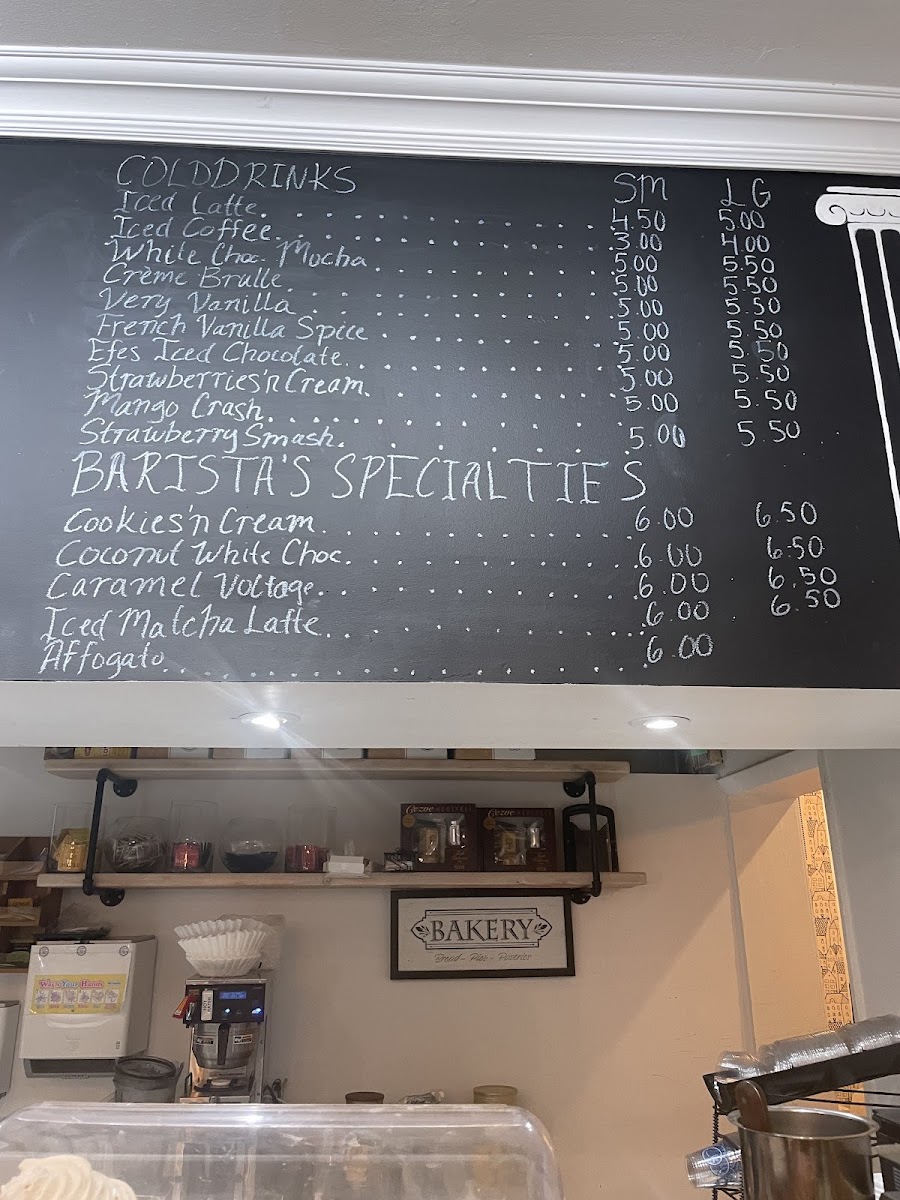 COLD DRINKS SM LG
Iced Latte 4.50 5.00
Iced Coffee 3.00 4.00
White Choc. Mocha 5.00 5.50
Crème Brulle 5.00 5.50
Very Vanilla 5.00 5.50
French Vanilla Spice 5.00 5.50
Efes Iced Chocolate 5.00 5.50
Strawberries'n Cream 5.00 5.50
Mango Crash 5.00 5.50
Strawberry Smash 5.00 5.50
BARISTA'S SPECIALTIES
Cookies'n Cream 6.00 6.50
Coconut White Choc. 6.00 6.50
Caramel Voltage 6.00 6.50
Iced Matcha Latte 6.00 6.50
Affogato 6.00
Cezve
Cezve
BAKERY
Bread - Pies - Pastries
Wash Your Hands